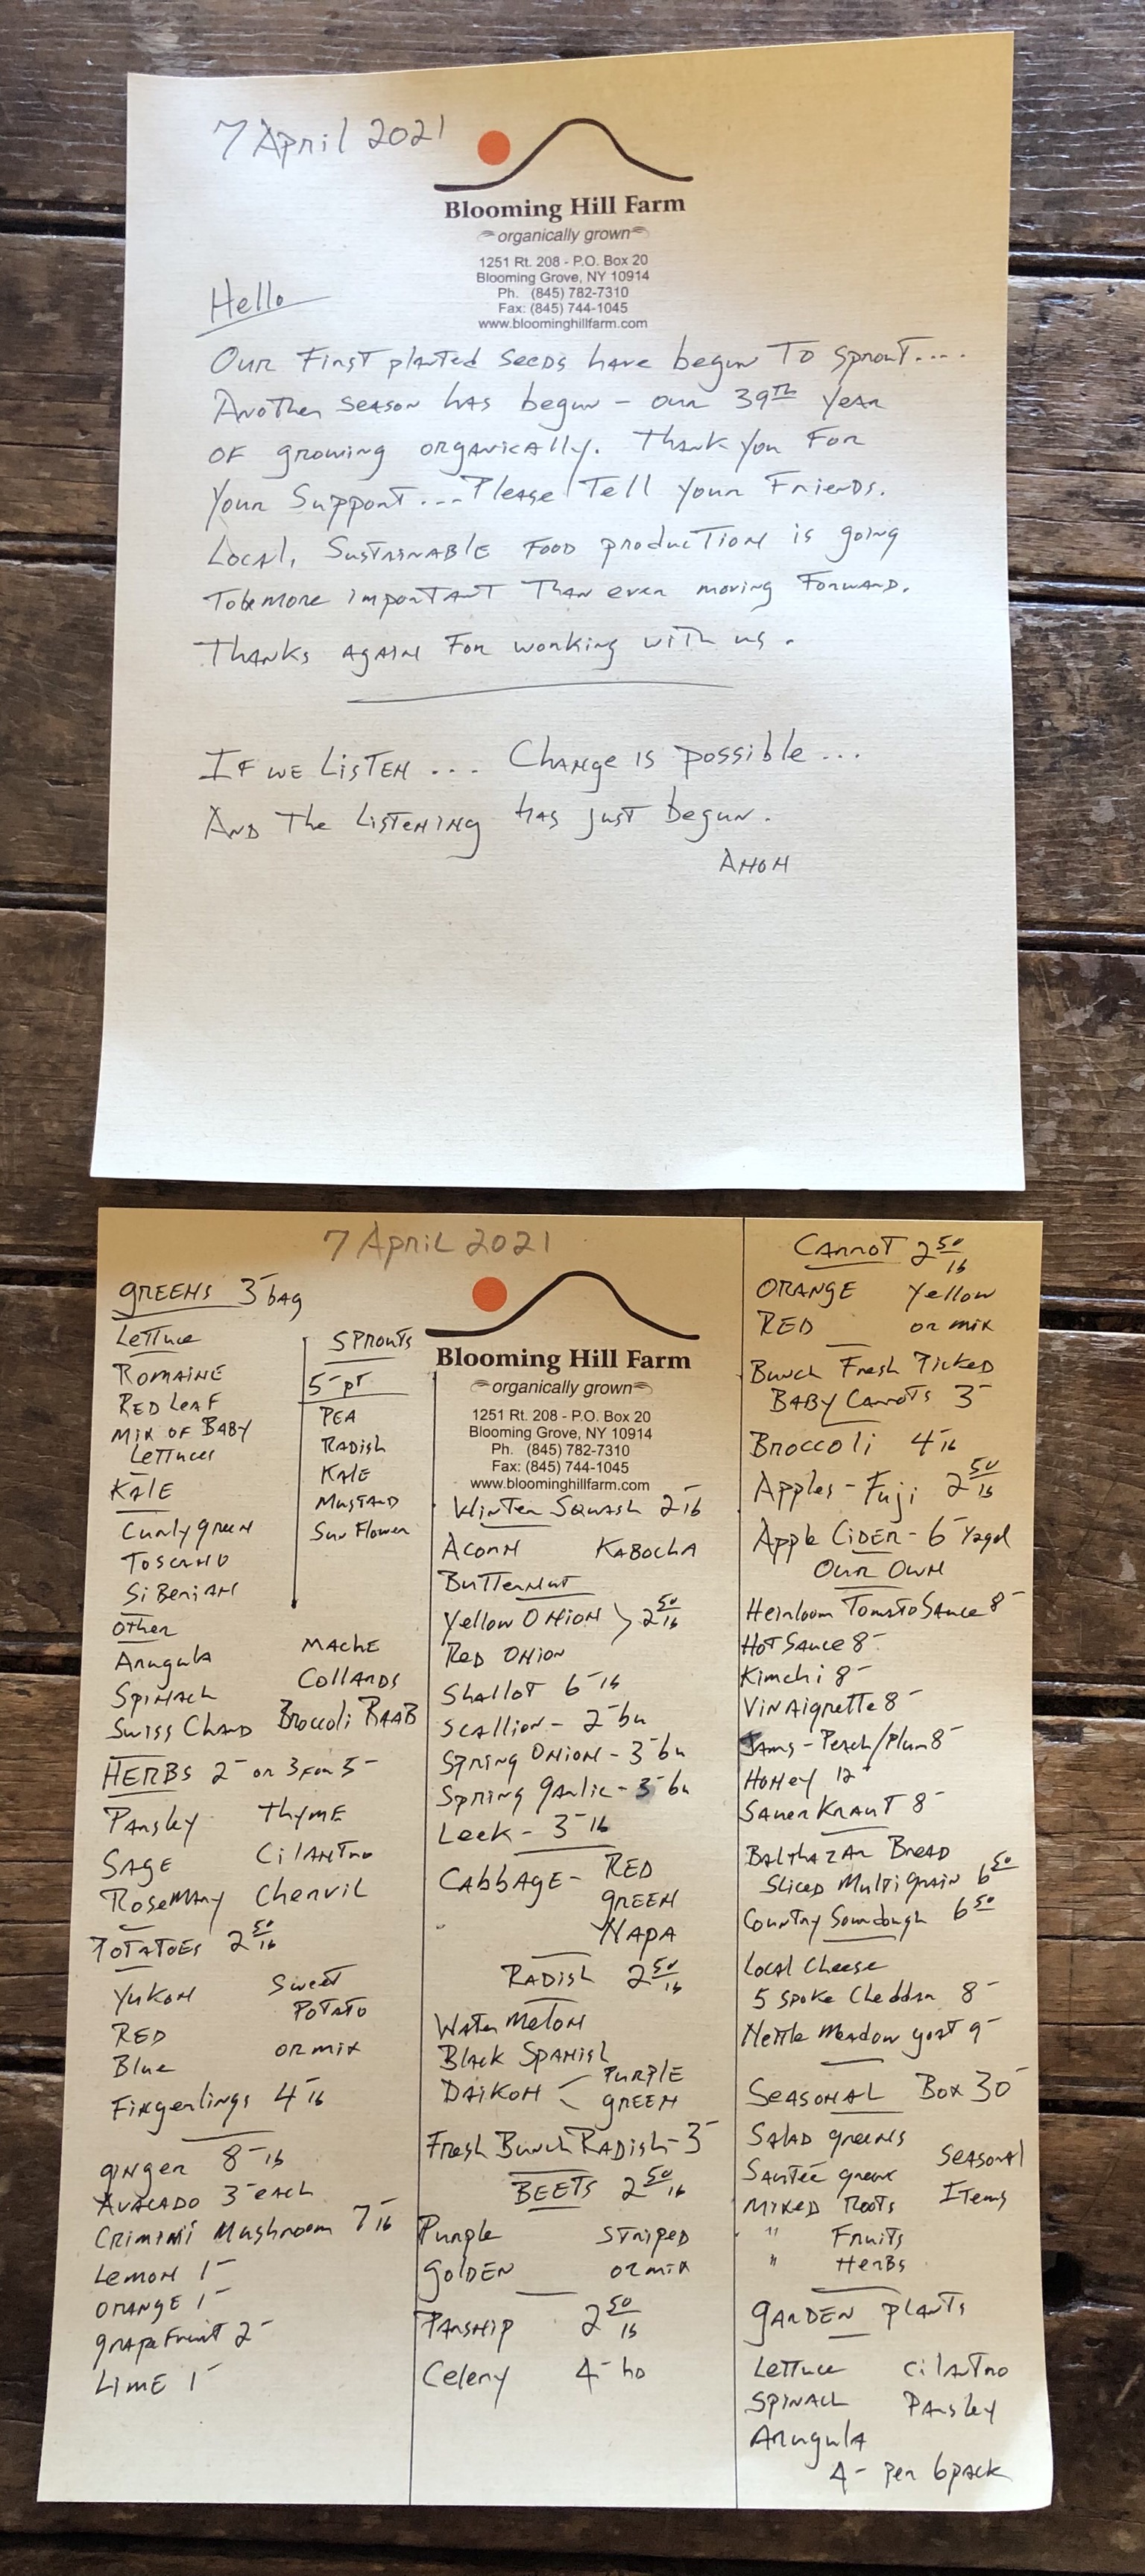 7 April 2021
Blooming Hill Farm
organically grown
1251 Rt. 208 - P.O. Box 20
Blooming Grove, NY 10914
Ph. (845) 782-7310
Fax: (845) 744-1045
www.bloominghillfarm.com
Hello
Our First planted seeds have begun to sprout....
Another season has begun - our 39th year
of growing organically. Thank you for
your support... Please tell your friends.
Local, sustainable food production is going
to be more important than ever moving forward.
Thanks again for working with us.
If we listen ... Change is possible ...
And the listening has just begun.
Anon
7 April 2021
Blooming Hill Farm
organically grown
1251 Rt. 208 - P.O. Box 20
Blooming Grove, NY 10914
Ph. (845) 782-7310
Fax: (845) 744-1045
www.bloominghillfarm.com
Greens 3- bag
Lettuce
Romaine
Red Leaf
Mix of Baby
Lettuces
Kale
Curly green
Toscano
Siberian
Other
Arugula
Spinach
Swiss Chard
Sprouts
5- pt
Pea
Radish
Kale
Mustard
Sunflower
Mache
Collards
Broccoli Raab
Herbs 2- or 3 for 5-
Parsley Thyme
Sage Cilantro
Rosemary Chervil
Potatoes 2 50/lb
Yukon Sweet
Potato
Red
Blue or mix
Fingerlings 4- lb
Ginger 8- lb
Avacado 3- each
Crimini Mushroom 7- lb
Lemon 1-
Orange 1-
Grapefruit 2-
Lime 1-
Winter Squash 2- lb
Acorn Kabocha
Butternut
Yellow Onion > 2 50/lb
Red Onion
Shallot 6- lb
Scallion - 2- bu
Spring Onion - 3- bu
Spring Garlic - 3- bu
Leek - 3- lb
Cabbage - Red
Green
Napa
Radish 2 50/lb
Water Melon
Black Spanish
Daikon < Purple
Green
Fresh Bunch Radish - 3-
Beets 2 50/lb
Purple Striped
Golden or mix
Parsnip 2 50/lb
Celery 4- hd
Carrot 2 50/lb
Orange Yellow
Red or mix
Bunch Fresh Picked
Baby Carrots 3-
Broccoli 4- lb
Apples - Fuji 2 50/lb
Apple Cider - 6- ½gal
Our Own
Heirloom Tomato Sauce 8-
Hot Sauce 8-
Kimchi 8-
Vinaigrette 8-
Jams - Peach/Plum 8-
Honey 12-
Sauerkraut 8-
Balthazar Bread
Sliced Multigrain 6 50
Country Sourdough 6 50
Local Cheese
5 Spoke Cheddar 8-
Nettle Meadow goat 9-
Seasonal Box 30-
Salad greens
Sautée greens
Mixed Roots
" Fruits
" Herbs
Seasonal
Items
Garden Plants
Lettuce Cilantro
Spinach Parsley
Arugula
4- per 6 pack